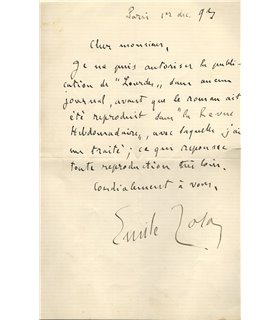 Paris 1er dec. 93
Cher monsieur,
Je ne puis autoriser la publi-
cation de "Lourdes", dans aucun
journal, avant que le roman ait
été reproduit dans "la Revue
Hebdomadaire, avec laquelle j'ai
un traité; ce qui repousse
toute reproduction très loin.
Cordialement à vous,
Emile Zola